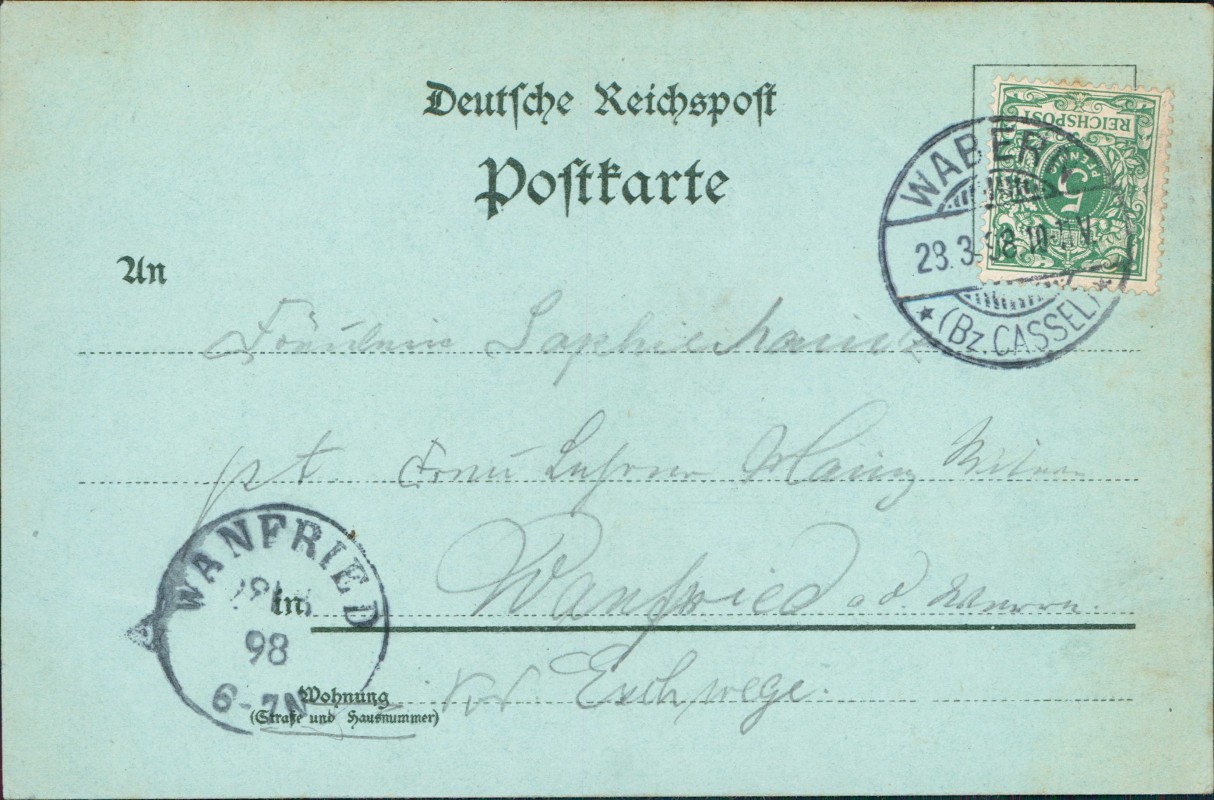 Deutsche Reichspost
Postkarte
REICHSPOST
5
PFENNIG
WABERN
28.3.98.10-11V.
* (Bz. CASSEL) *
An
Fräulein Sophie
pt. Frau Lehrer Mainz Witwe
WANFRIED
98
6-7N
in Wanfried a. d. Werra.
Wohnung
(Straße und Hausnummer)
Kr. Eschwege.